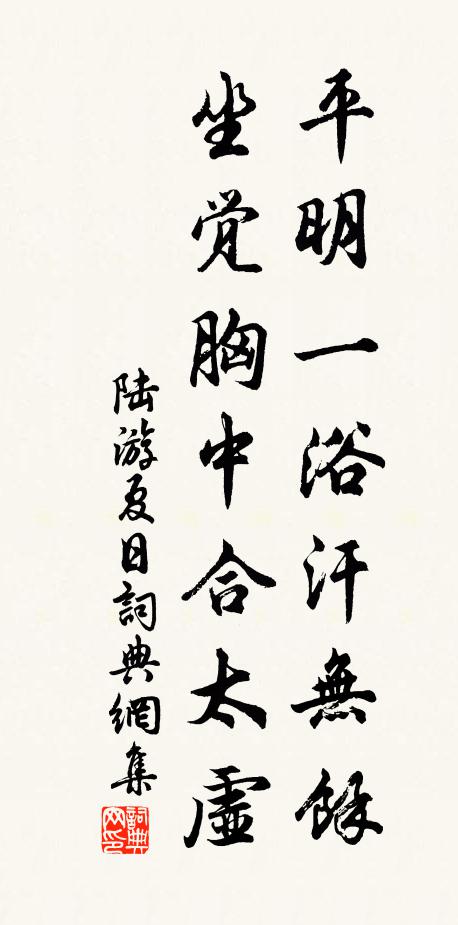 平明一浴汗無餘
坐觉胸中合太虛
陆游夏日詞典網集
詞典网印